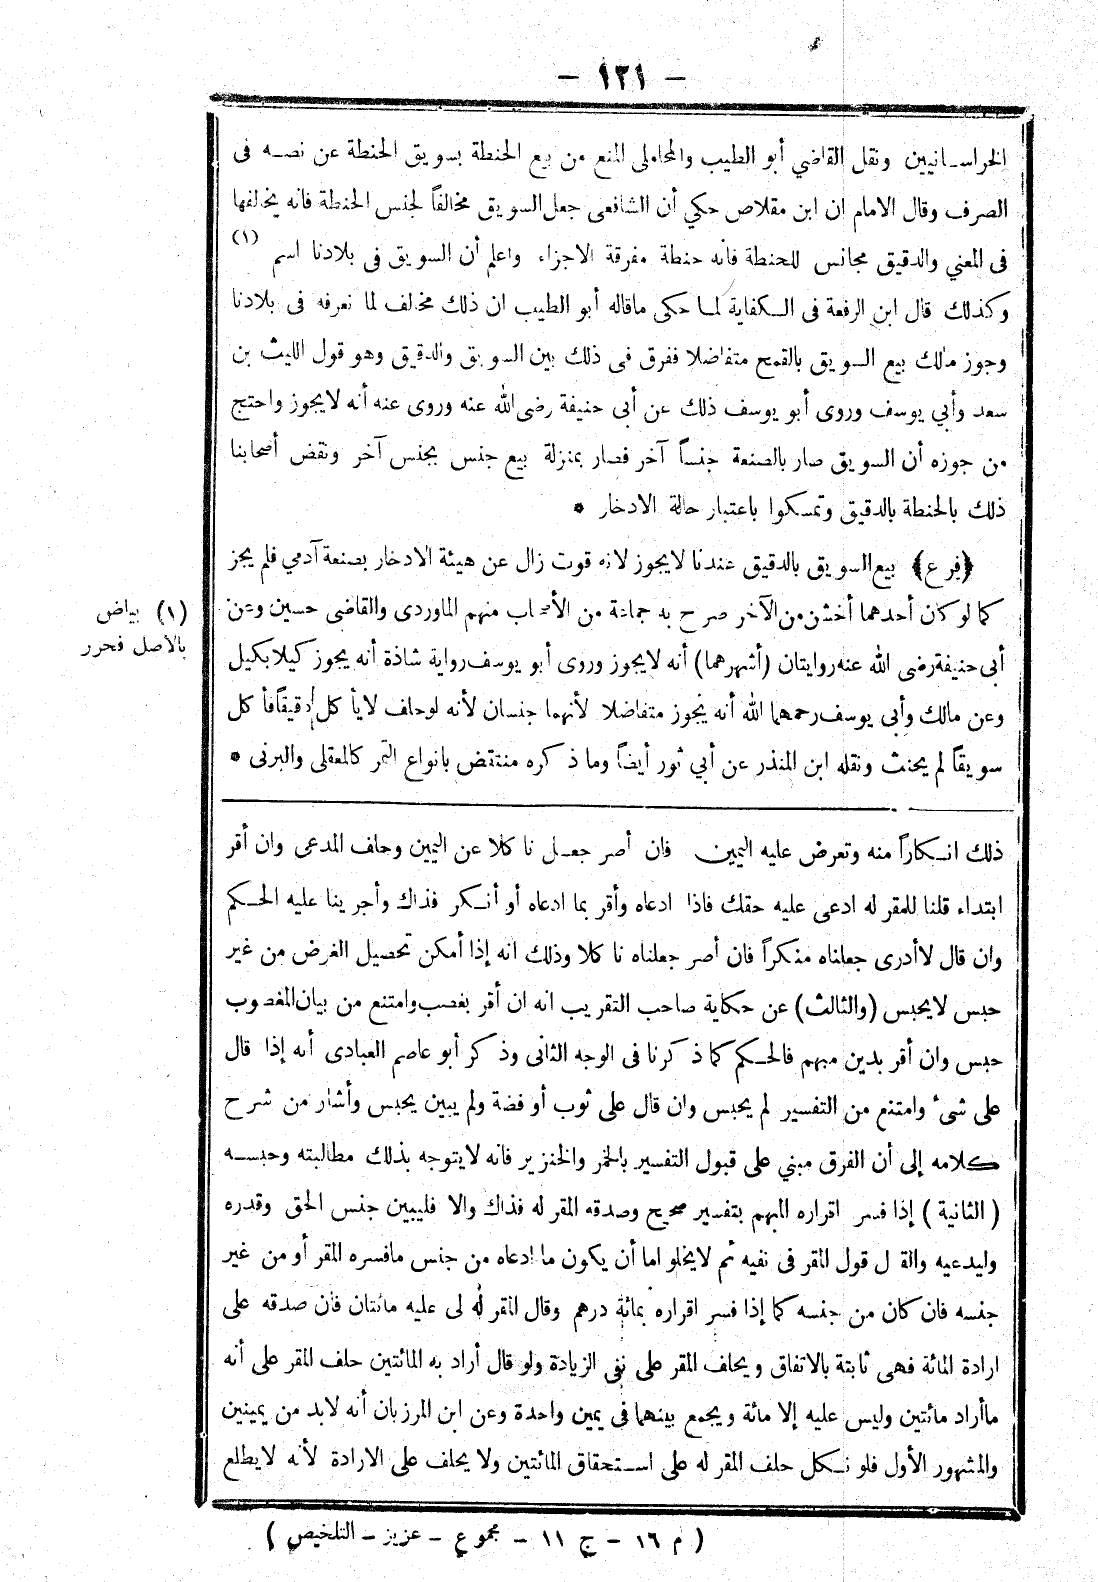 - ١٢١ -
الخراسانيين ونقل القاضي أبو الطيب والمحاملى المنع من بيع الحنطة بسويق الحنطة عن نصه فى
الصرف وقال الامام ان ابن مقلاص حكي أن الشافعى جعل السويق مخالفاً لجنس الحنطة فانه يخالفها
فى المعني والدقيق مجانس للحنطة فأنه حنطة مفرقة الاجزاء واعلم أن السويق فى بلادنا اسم (١)
وكذلك قال ابن الرفعة فى الكفاية لما حكى ماقاله أبو الطيب ان ذلك مخالف لما نعرفه فى بلادنا
وجوز مالك بيع السويق بالقمح متفاضلا ففرق فى ذلك بين السويق والدقيق وهو قول الليث بن
سعد وأبي يوسف وروى أبو يوسف ذلك عن أبى حنيفة رضى الله عنه وروى عنه أنه لايجوز واحتج
من جوزه أن السويق صار بالصنعة جنساً آخر فصار بمنزلة بيع جنس بجنس آخر ونقض أصحابنا
ذلك بالحنطة بالدقيق وتمسكوا باعتبار حالة الادخار *
﴿فرع﴾ بيع السويق بالدقيق عندنا لايجوز لانه قوت زال عن هيئة الادخار بصنعة آدمي فلم يجز
كما لو كان أحدهما أخشن من الآخر صرح به جماعة من الأصحاب منهم الماوردى والقاضى حسين وعن
أبى حنيفة رضى الله عنه روايتان (أشهرهما) أنه لايجوز وروى أبو يوسف رواية شاذة أنه يجوز كيلا بكيل
وعن مالك وأبى يوسف رحمهما الله أنه يجوز متفاضلا لأنهما جنسان لأنه لوحلف لايأ كل دقيقاً فأ كل
سويقاً لم يحنث ونقله ابن المنذر عن أبي ثور أيضاً وما ذكره منتقض بانواع التمر كالمعقلى والبرنى *
(١) بياض
بالاصل فحرر
ذلك انكاراً منه وتعرض عليه اليمين فان أصر جعل نا كلا عن اليمين وحلف المدعى وان أقر
ابتداء قلنا للمقر له ادعى عليه حقك فاذا ادعاه وأقر بما ادعاه أو أنكر فذاك وأجرينا عليه الحكم
وان قال لاأدرى جعلناه منكراً فان أصر جعلناه نا كلا وذلك انه إذا أمكن تحصيل الغرض من غير
حبس لايحبس (والثالث) عن حكاية صاحب التقريب انه ان أقر بغصب وامتنع من بيان المغصوب
حبس وان أقر بدين مبهم فالحكم كما ذكرنا فى الوجه الثانى وذكر أبو عاصم العبادى أنه إذا قال
على شىء وامتنع من التفسير لم يحبس وان قال على ثوب أو فضة ولم يبين يحبس وأشار من شرح
كلامه إلى أن الفرق مبني على قبول التفسير بالخمر والخنزير فانه لايتوجه بذلك مطالبته وحبسه
( الثانية ) إذا فسر اقراره المبهم بتفسير صحيح وصدقه المقر له فذاك والا فليبين جنس الحق وقدره
وليدعيه والقول قول المقر فى نفيه ثم لايخلو اما أن يكون ما ادعاه من جنس مافسره المقر أو من غير
جنسه فان كان من جنسه كما إذا فسر اقراره بمائة درهم وقال المقر له لى عليه مائتان فان صدقه على
ارادة المائة فهى ثابتة بالاتفاق ويحلف المقر على نفى الزيادة ولو قال أراد به المائتين حلف المقر على أنه
ماأراد مائتين وليس عليه إلا مائة ويجمع بينهما فى يمين واحدة وعن ابن المرزبان أنه لابد من يمينين
والمشهور الأول فلو نكل حلف المقر له على استحقاق المائتين ولا يحلف على الارادة لأنه لايطلع
( م ١٦ - ج ١١ - مجموع - عزيز - التلخيص )